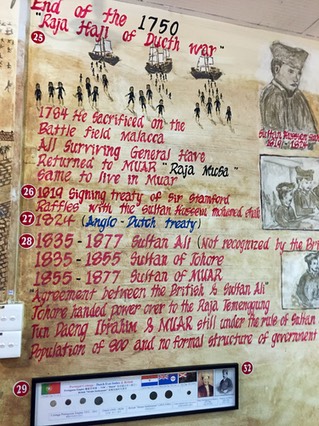 End of the 1750
"Raja Haji of Ducth war"
25
1784 He Sacrificed on the
Battle Field Malacca
All Surviving General Have
Returned to MUAR "Raja Musa"
Same to live in Muar
26 1819 Signing treaty of Sir Stamford
Raffles with the Sultan Hussein mohamed shah
27 1824 (Anglo - Dutch treaty)
28 1835 - 1877 Sultan Ali (Not recognized by the Bri
1835 - 1855 Sultan of Johore
1855 - 1877 Sultan of MUAR
"Agreement between the British & Sultan Ali"
Johore handed power over to the Raja Temenggung
Tun Daeng Ibrahim & MUAR still under the rule of Sultan
Population of 800 and no formal structure of government
29
32